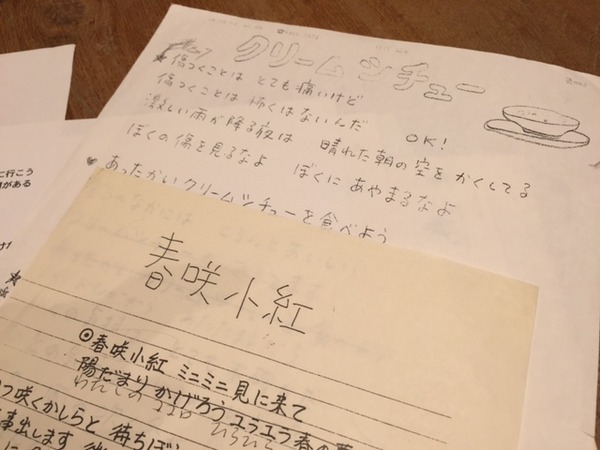 クリームシチュー
★傷つくことは とても痛いけど
傷つくことは 怖くはないんだ OK!
激しい雨が降る夜は 晴れた朝の空を かくしてる
ぼくの傷を見るなよ ぼくに あやまるなよ
♥あったかいクリームシチューを食べよう
に行こう
がある
春咲小紅
◉春咲小紅 ミニミニ 見に来て
陽だまり かげろう ユラユラ 春の
つ咲くかしらと 待ちぼ
事出します